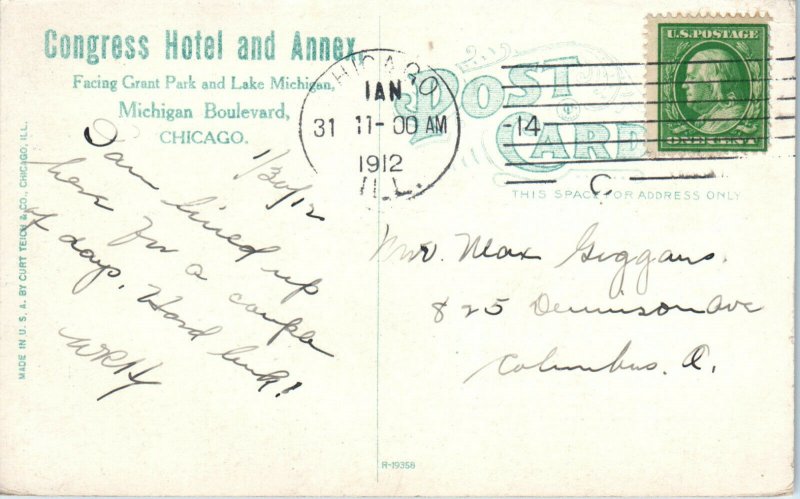 Congress Hotel and Annex
Facing Grant Park and Lake Michigan,
Michigan Boulevard,
CHICAGO.
MADE IN U. S. A. BY CURT TEICH & CO., CHICAGO, ILL.
CHICAGO
JAN
31 11-00 AM
1912
ILL.
-14
C
POST
CARD
U.S. POSTAGE
ONE CENT
THIS SPACE FOR ADDRESS ONLY
1/30/12
I am lined up
here for a couple
of days. Hard luck!
WRH
Mr. Max Giggans.
825 Dennison Ave
Columbus. O.
R-19358